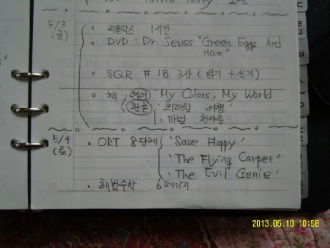 5/3 (금)
◦ 리틀팍스 1시간
◦ DVD : Dr. Seuss "Green Eggs And Ham"
◦ SQR # 18 3장 (읽기 + 쓰기)
◦ 책 영어 'My Colors, My World
한글
5/4 (토)
◦ ORT 8단계 'Save Floppy'
'The Flying Carpet'
'The Evil Genie'
◦ 해법수학 6페이지
2013.05.10 10:58